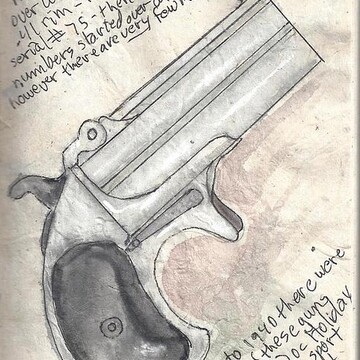 over
.41 rim-
serial # 75 - then
numbers started over
however there are very few
to 1940 there were
these guns
Doc Holiday
port